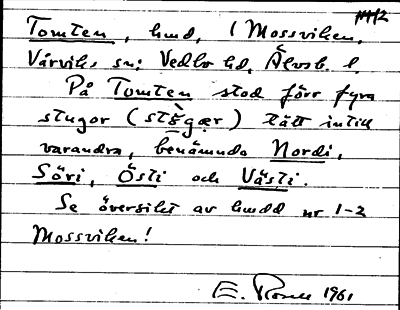 Tomten, hmd, (Mossviken,
Vårviks sn; Vedbo hd, Älvsb. l.
På Tomten stod förr fyra
stugor (stø̀gær) tätt intill
varandra, benämnda Nordi,
Söri, Östi och Västi.
Se översikt av hmdd nr 1-2
Mossviken!
E. 1961